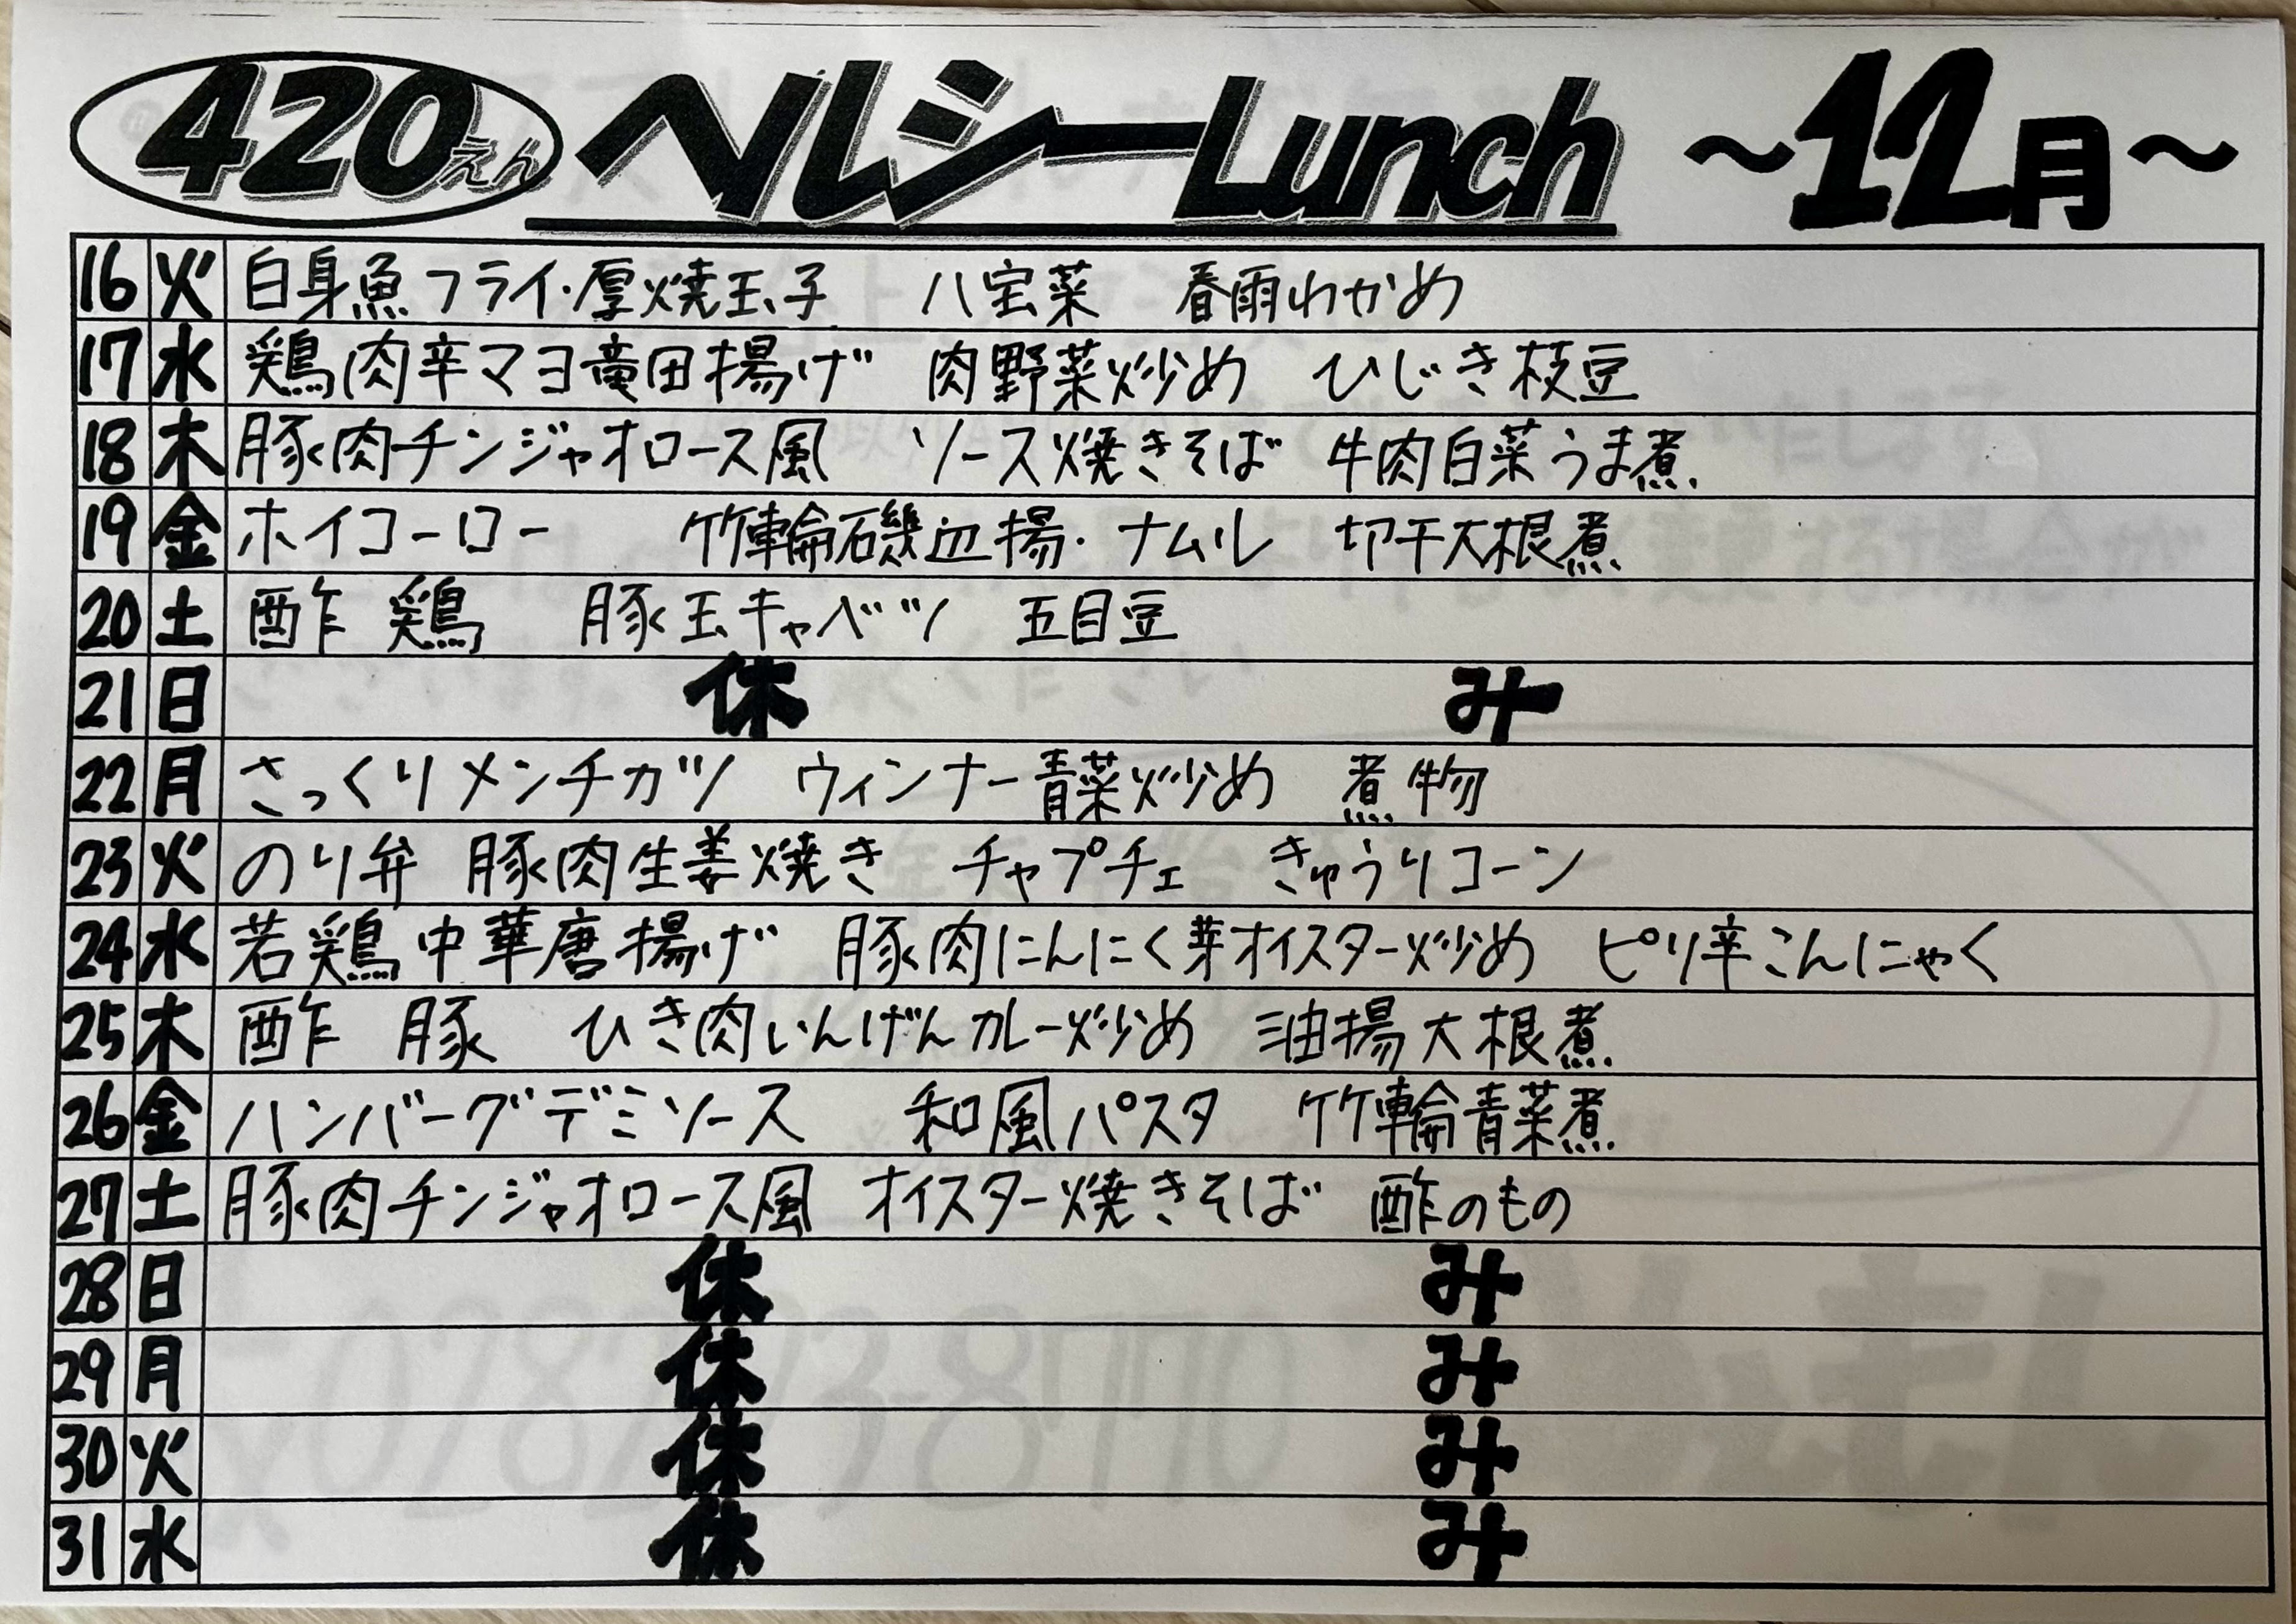 420えん ヘルシーLunch ～12月～
16 火 白身魚フライ・厚焼玉子 八宝菜 春雨わかめ
17 水 鶏肉辛マヨ竜田揚げ 肉野菜炒め ひじき枝豆
18 木 豚肉チンジャオロース風 ソース焼きそば 牛肉白菜うま煮
19 金 ホイコーロー 竹輪磯辺揚・ナムル 切干大根煮
20 土 酢鶏 豚玉キャベツ 五目豆
21 日 休み
22 月 さっくりメンチカツ ウィンナー青菜炒め 煮物
23 火 のり弁 豚肉生姜焼き チャプチェ きゅうりコーン
24 水 若鶏中華唐揚げ 豚肉にんにく芽オイスター炒め ピリ辛こんにゃく
25 木 酢豚 ひき肉いんげんカレー炒め 油揚大根煮
26 金 ハンバーグデミソース 和風パスタ 竹輪青菜煮
27 土 豚肉チンジャオロース風 オイスター焼きそば 酢のもの
28 日 休み
29 月 休み
30 火 休み
31 水 休み